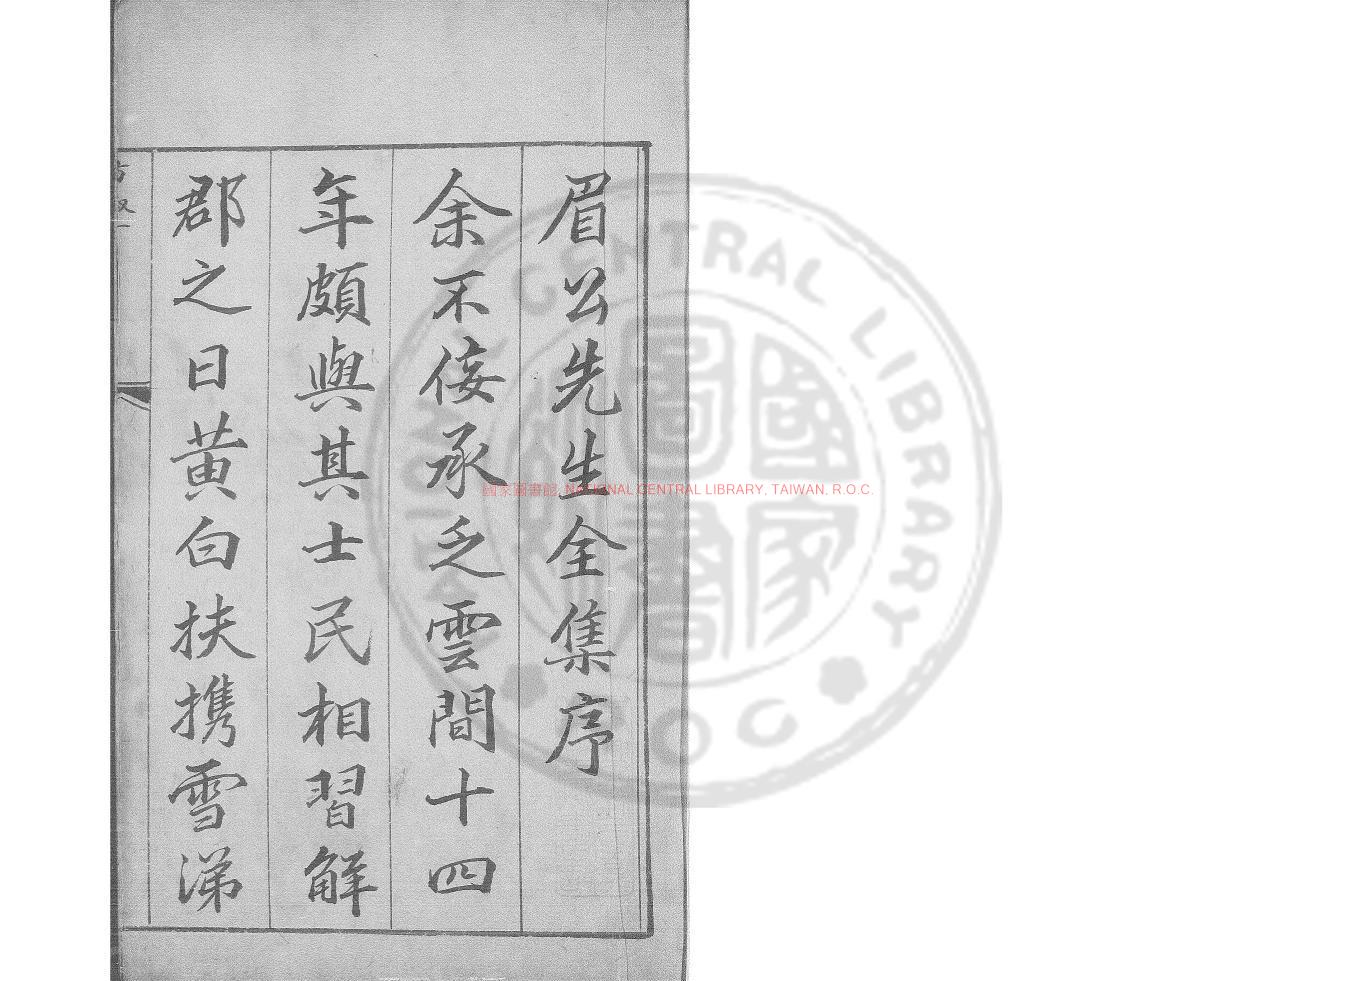 眉公先生全集序
余不佞承乏雲間十四
年頗與其士民相習解
郡之日黃白扶携雪涕
國家圖書館, NATIONAL CENTRAL LIBRARY, TAIWAN, R.O.C.
CENTRAL LIBRARY